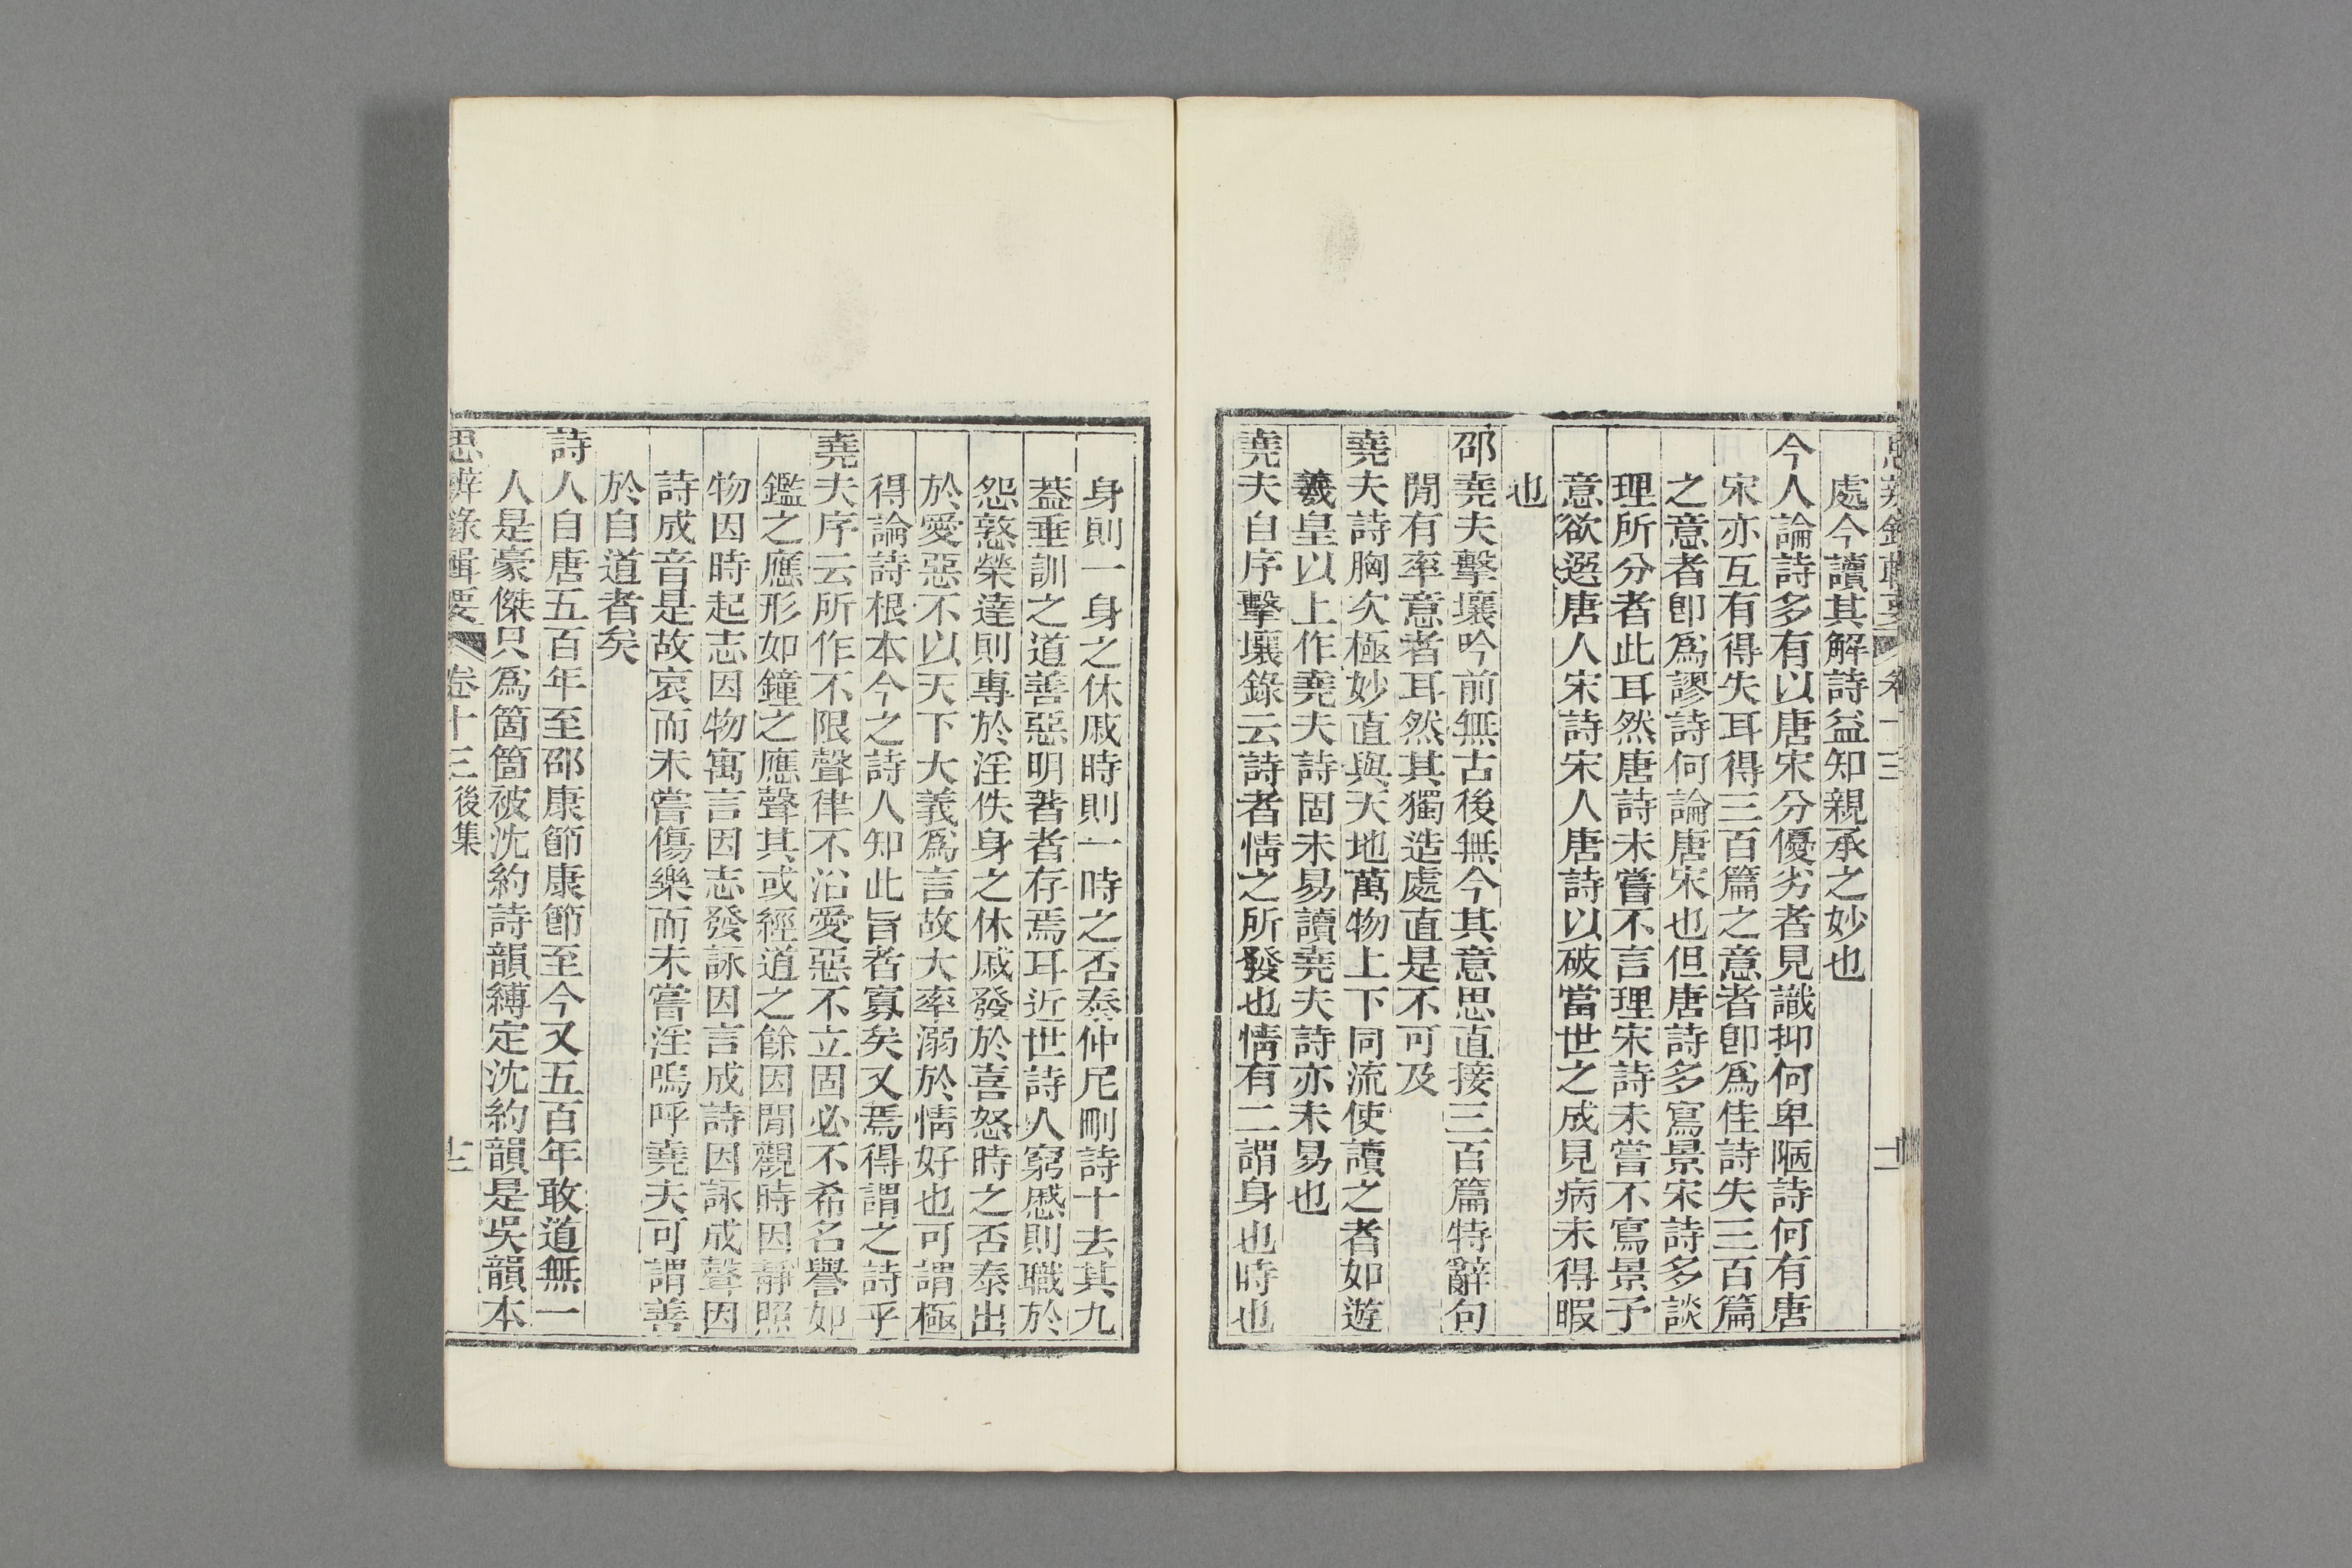 思辨錄輯要 卷十三
處今讀其解詩益知親承之妙也
今人論詩多有以唐宋分優劣者見識抑何卑陋詩何有唐
宋亦互有得失耳得三百篇之意者卽爲佳詩失三百篇
之意者卽爲謬詩何論唐宋也但唐詩多寫景宋詩多談
理所分者此耳然唐詩未嘗不言理宋詩未嘗不寫景予
意欲選唐人宋詩宋人唐詩以破當世之成見病未得暇
也
邵堯夫擊壤吟前無古後無今其意思直接三百篇特辭句
閒有率意者耳然其獨造處直是不可及
堯夫詩胸次極妙直與天地萬物上下同流使讀之者如遊
羲皇以上作堯夫詩固未易讀堯夫詩亦未易也
堯夫自序擊壤錄云詩者情之所發也情有二謂身也時也
身則一身之休戚時則一時之否泰仲尼刪詩十去其九
葢垂訓之道善惡明著者存焉耳近世詩人窮慼則職於
怨憝榮達則專於淫佚身之休戚發於喜怒時之否泰出
於愛惡不以天下大義爲言故大率溺於情好也可謂極
得論詩根本今之詩人知此旨者寡矣又焉得謂之詩乎
堯夫序云所作不限聲律不沿愛惡不立固必不希名譽如
鑑之應形如鐘之應聲其或經道之餘因閒觀時因靜照
物因時起志因物寓言因志發詠因言成詩因詠成聲因
詩成音是故哀而未嘗傷樂而未嘗淫嗚呼堯夫可謂善
於自道者矣
詩人自唐五百年至邵康節康節至今又五百年敢道無一
人是豪傑只爲箇箇被沈約詩韻縛定沈約韻是吳韻本
思辨錄輯要 卷十三後集 十二